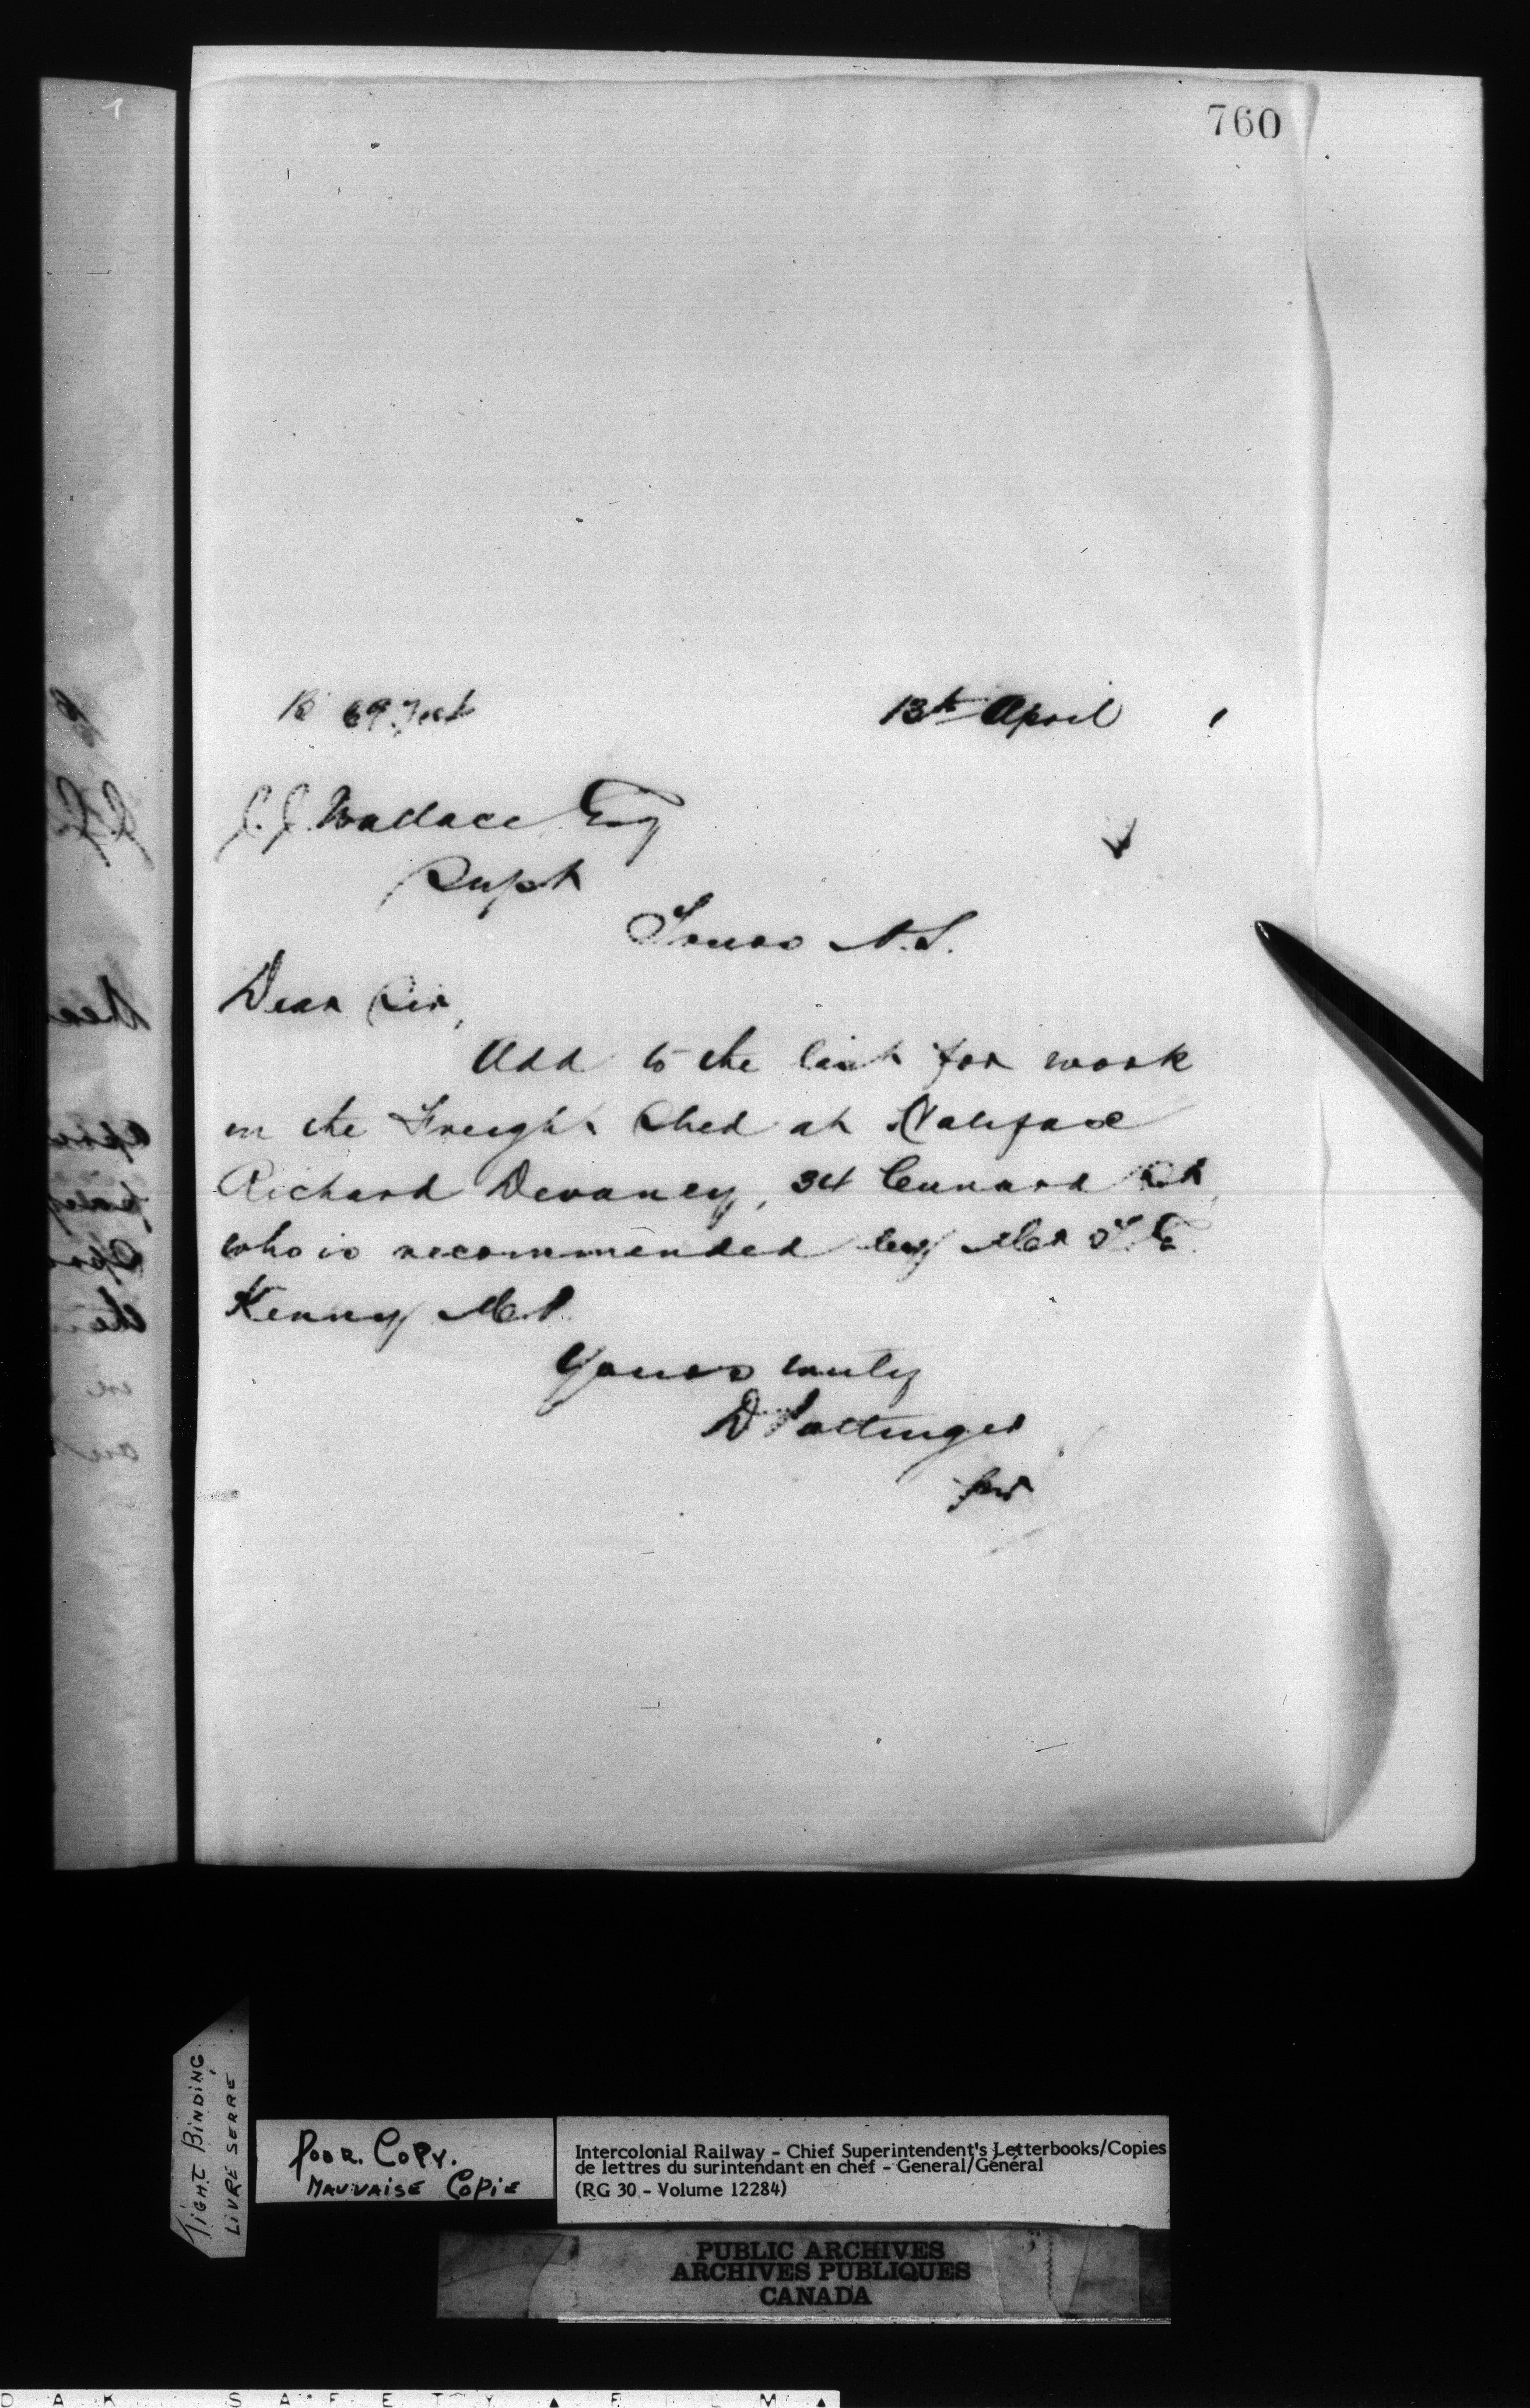 760
13th April
J. J. Wallace Esq
Supt
Truro N.S.
Dear Sir,
Add to the list for work
in the Freight Shed at Halifax
Richard Devaney, 34 Cunard St,
who is recommended by Mr T. E.
Kenny M.P.
Yours truly
D Pottinger
TIGHT BINDING
LIVRE SERRE
POOR COPY.
MAUVAISE COPIE
Intercolonial Railway - Chief Superintendent's Letterbooks/Copies
de lettres du surintendant en chef - General/Général
(RG 30 - Volume 12284)
PUBLIC ARCHIVES
ARCHIVES PUBLIQUES
CANADA
D A K S A F E T Y ▲ F I L M ▲